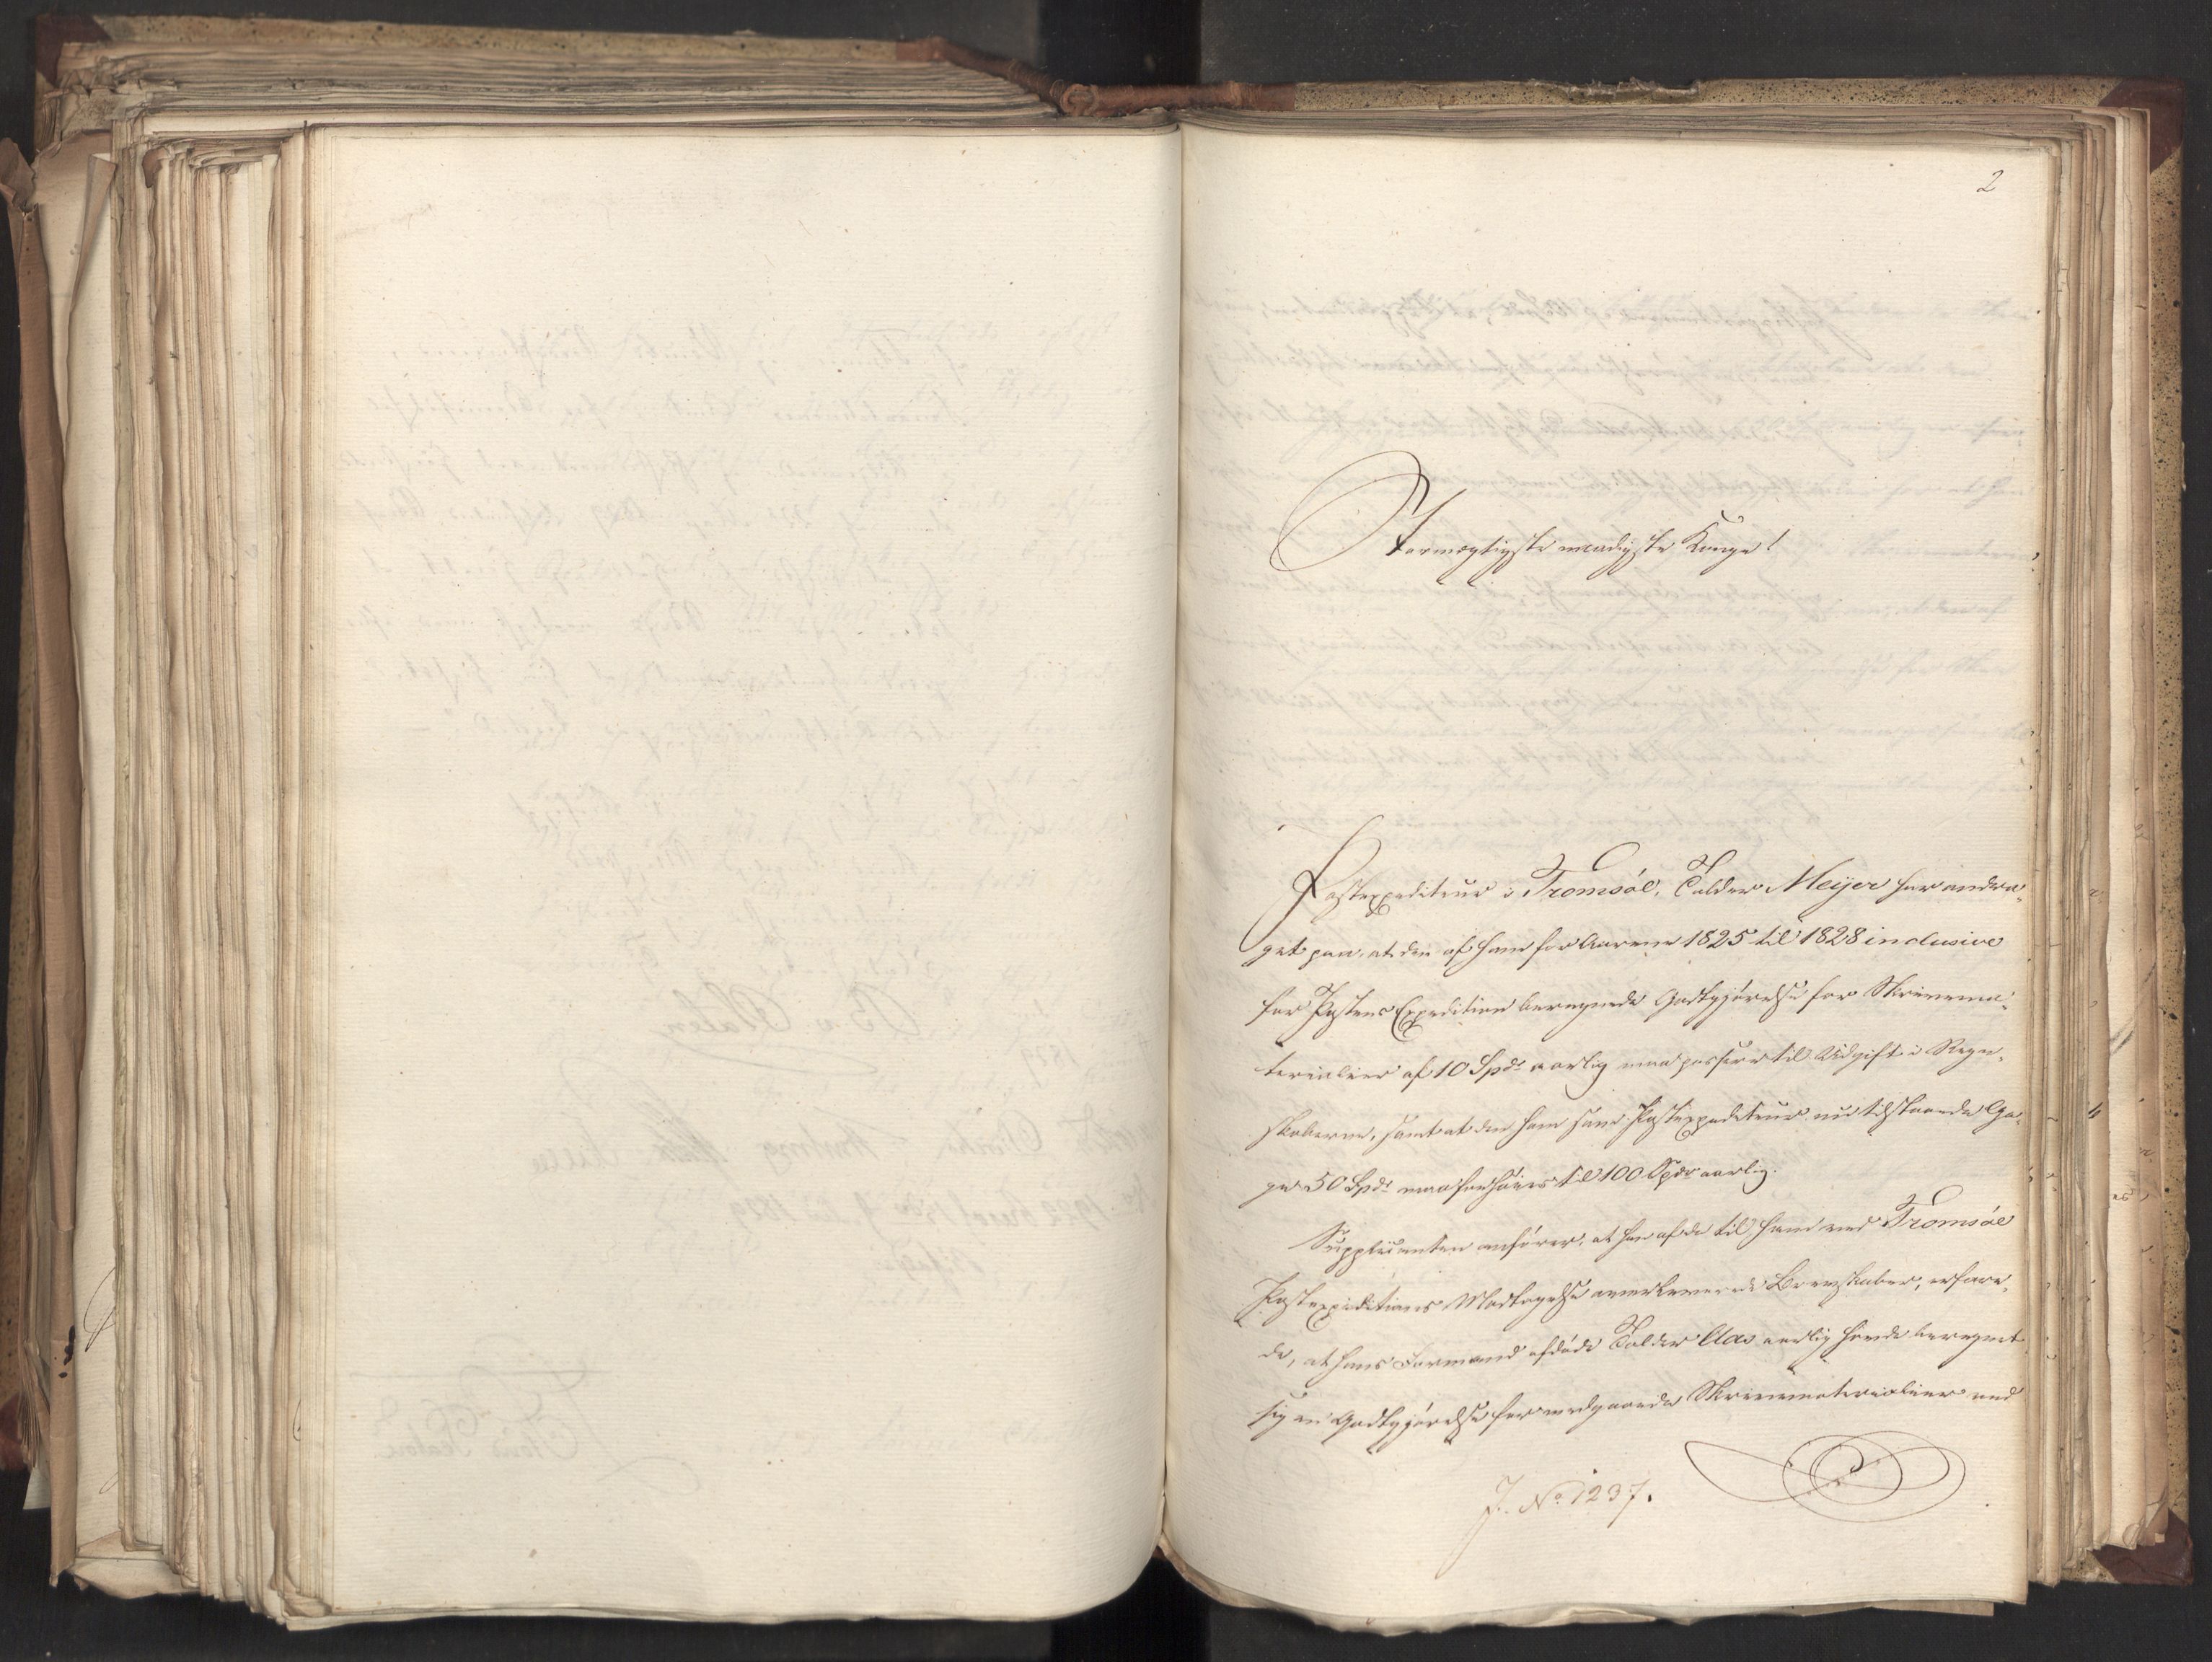 2
Stormægtigste naadigste Konge!
Postexpediteur i Tromsöe, Tolder Meÿer har andra-
get paa, at den af ham for Aarene 1825 til 1828 inclusive
for Postens Expedition beregnede Godtgjörelse for Skrivema-
terialier af 10 Spdr aarlig maa passere til Udgift i Regn-
skaberne, samt at den ham som Postexpediteur nu tilstaaede Ga-
ge 50 Spdr maa forhöies til 100 Spdr aarlig.
Supplicanten anförer, at han af de til ham ved Tromsöe
Postexpeditions Modtagelse Brevskaber, erfare-
de, at hans Formand afdöde Tolder aarlig havde beregnet
sig en Godtgjörelse for medgaaede Skrivematerialier ved
J. No 1237.